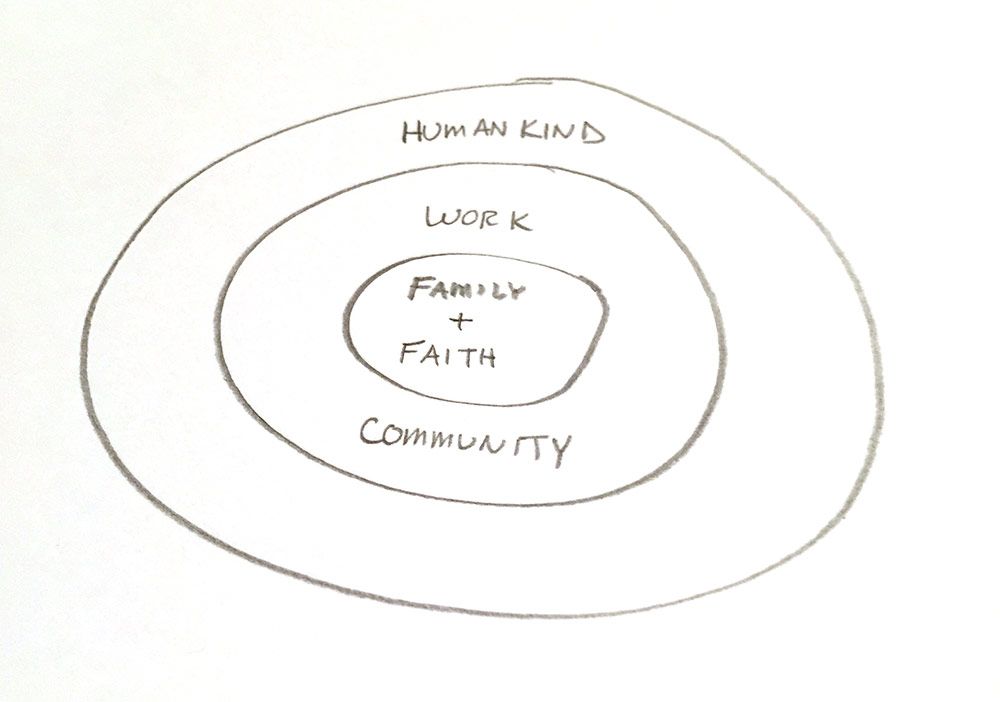 HUMAN KIND
WORK
FAMILY
+
FAITH
COMMUNITY